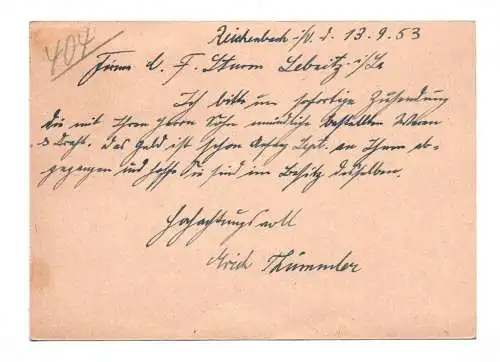 404
Reichenbach i/V. d. 13.9.53
Firma C. F. Sturm Lebnitz i/Sa
Ich bitte um sofortige Zusendung
die mit Ihren Herrn Sohn mündliche bestellten Waren
Draht. Das Geld ist schon Anfang Sept. an Ihnen ab-
gegangen und hoffe Sie sind im Besitz desselben.
Hochachtungsvoll
Erich Thümmler